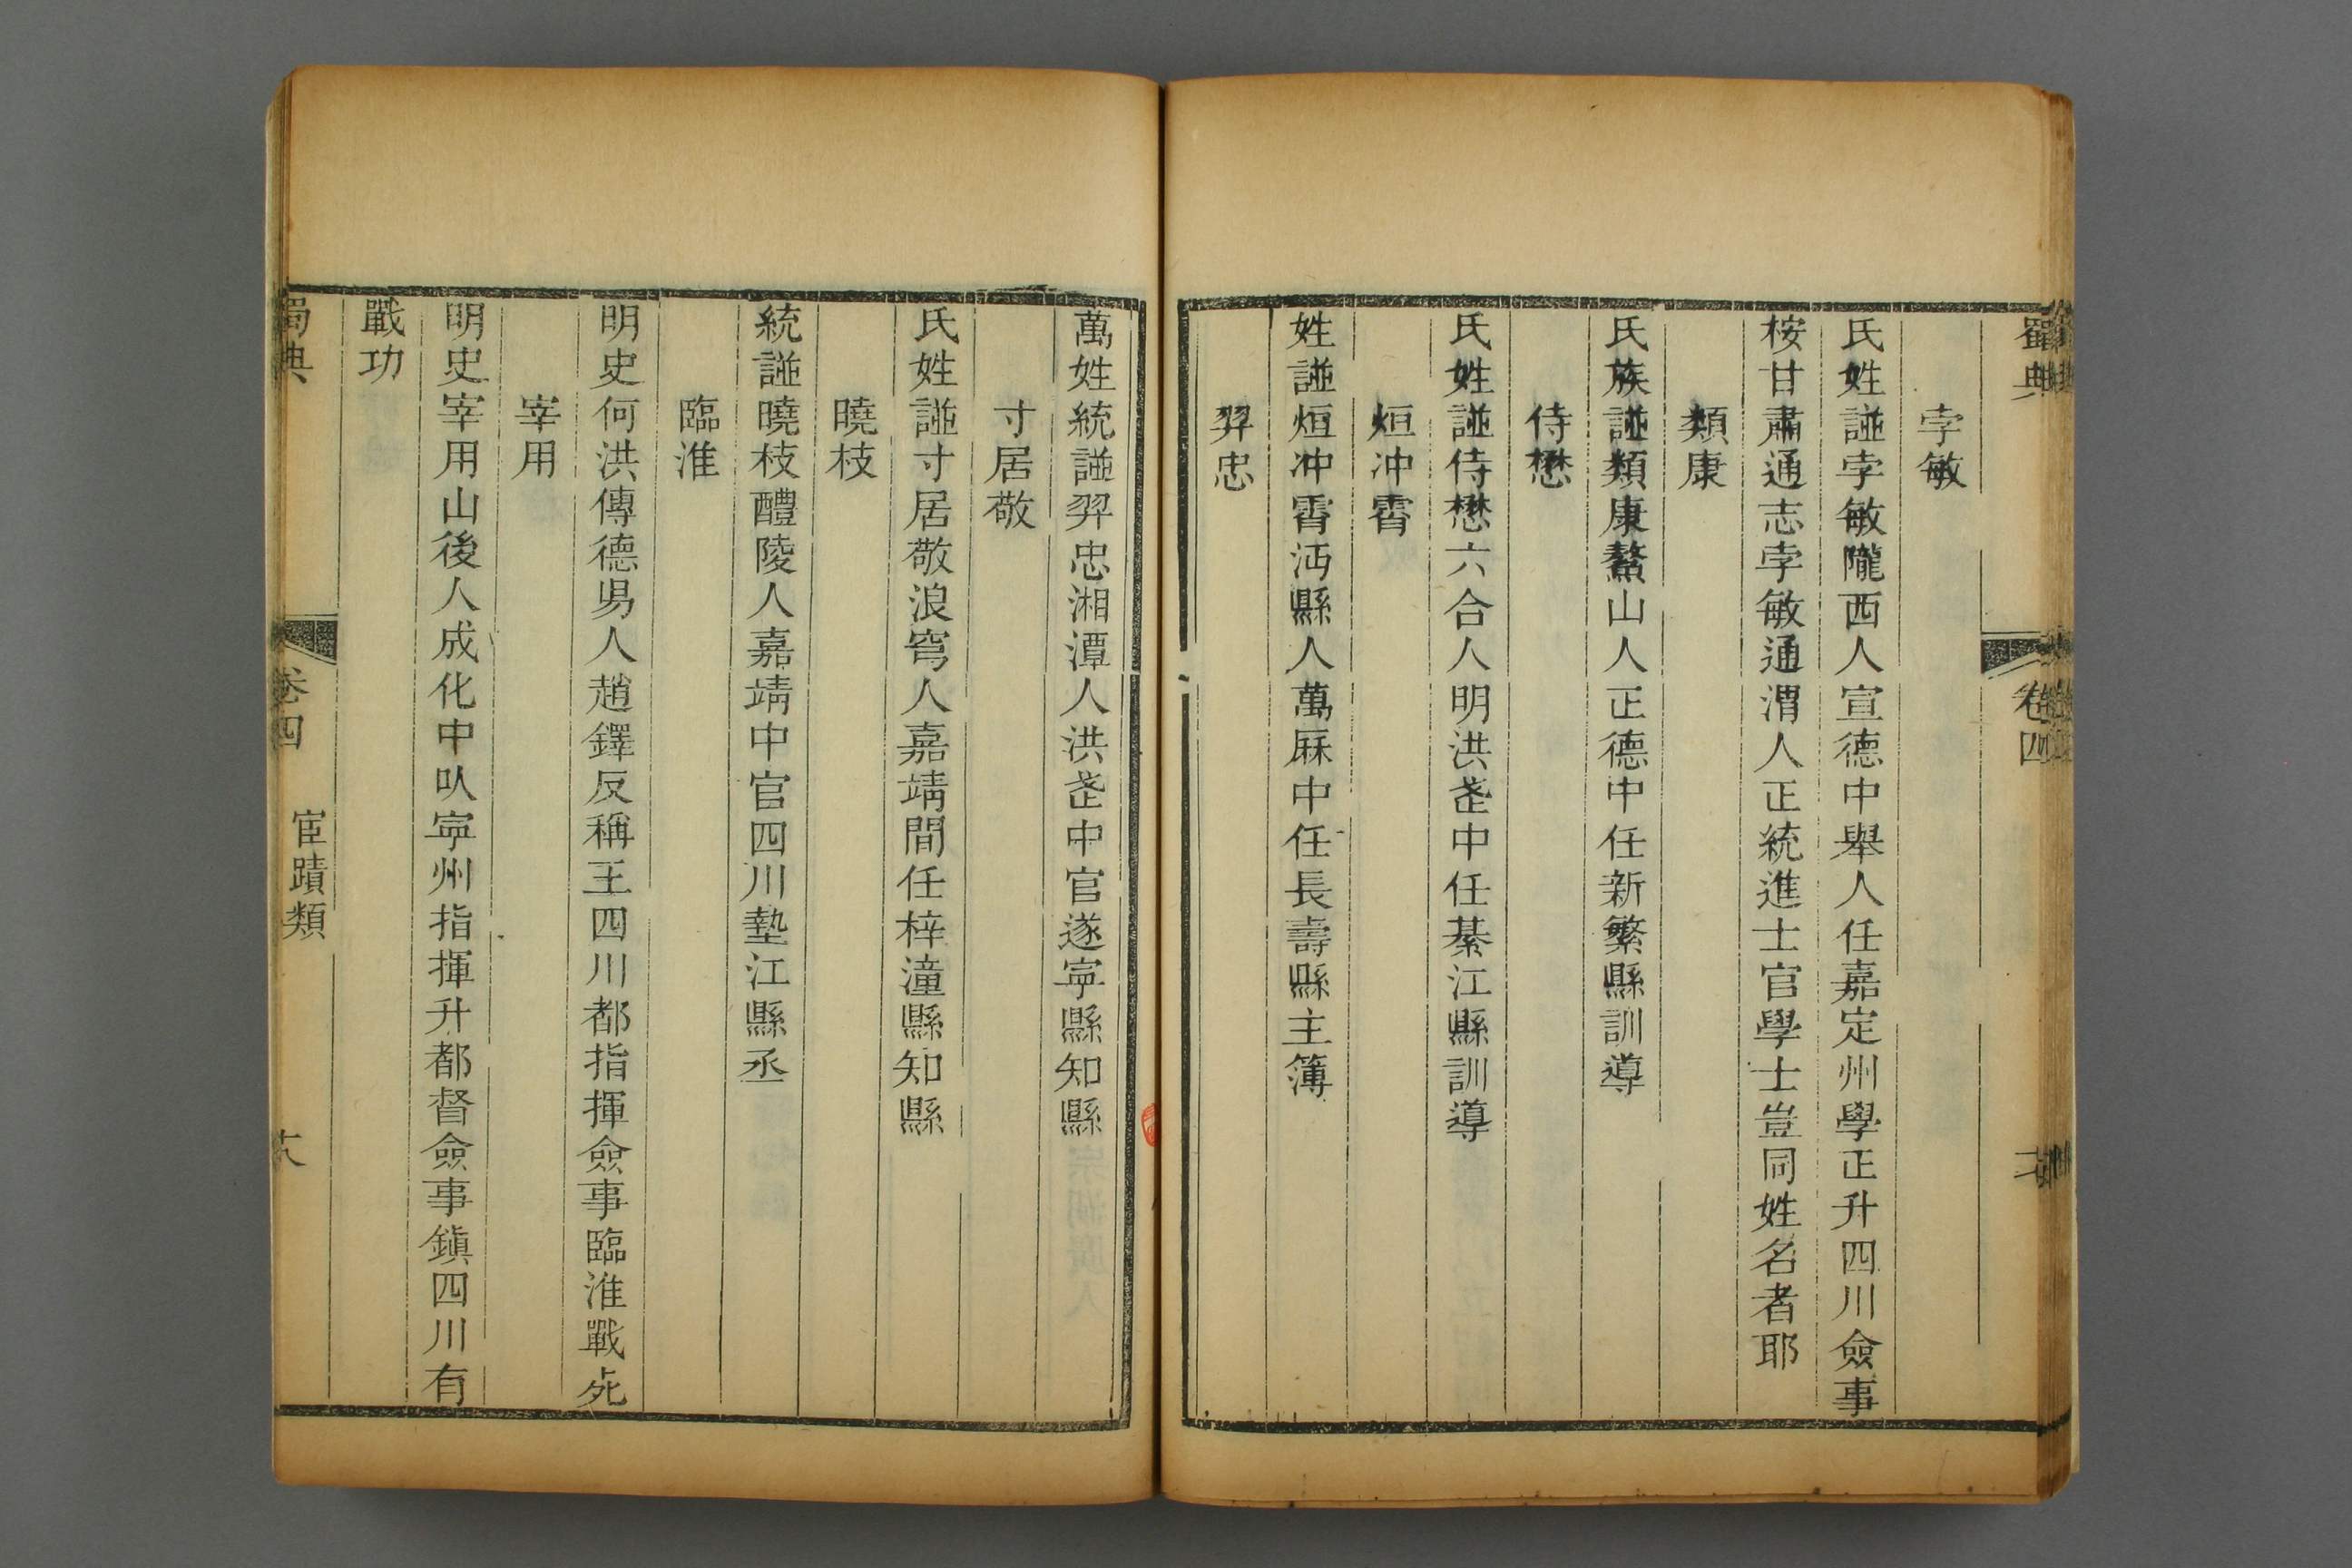 蜀典
卷四
孛敏
氏姓譜孛敏隴西人宣德中舉人任嘉定州學正升四川僉事
桉甘肅通志孛敏通渭人正統進士官學士豈同姓名者耶
類康
氏族譜類康鰲山人正德中任新繁縣訓導
侍懋
氏姓譜侍懋六合人明洪武中任綦江縣訓導
烜冲霄
姓譜烜冲霄沔縣人萬厤中任長壽縣主簿
羿忠
萬姓統譜羿忠湘潭人洪武中官遂寧縣知縣
寸居敬
氏姓譜寸居敬浪穹人嘉靖間任梓潼縣知縣
曉枝
統譜曉枝醴陵人嘉靖中官四川墊江縣丞
臨淮
明史何洪傳德昜人趙鐸反稱王四川都指揮僉事臨淮戰死
宰用
明史宰用山後人成化中㕥寧州指揮升都督僉事鎮四川有
戰功
蜀典
卷四
宦蹟類
六